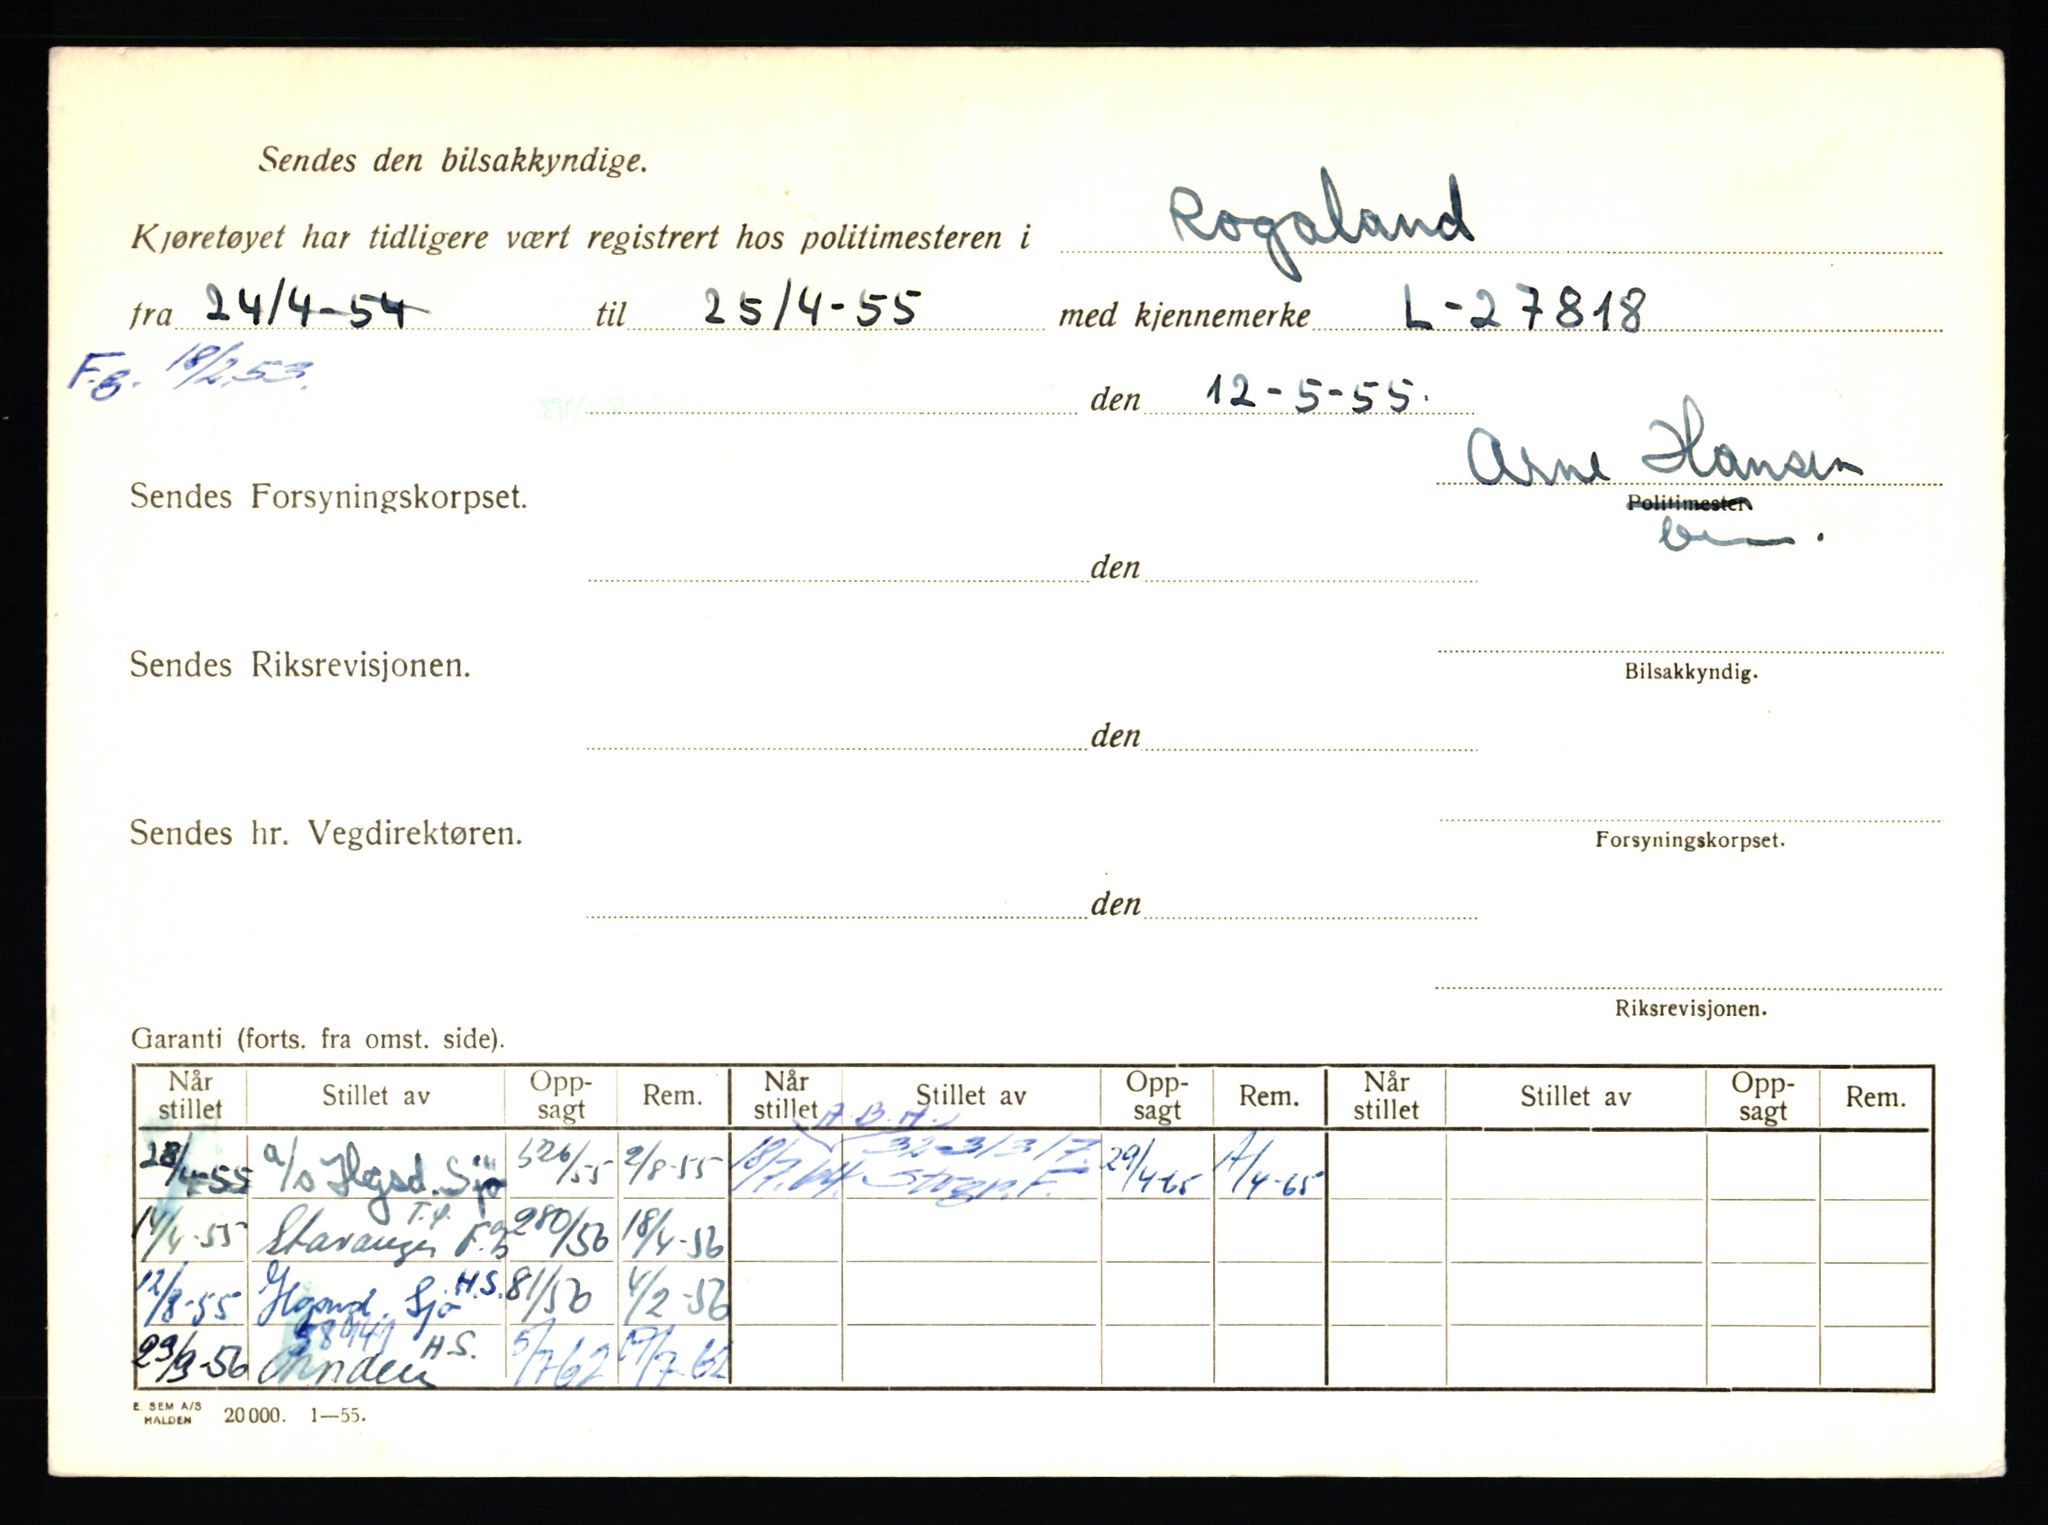 Sendes den bilsakkyndige.
Kjøretøyet har tidligere vært registrert hos politimesteren i Rogaland
fra 24/4-54 til 25/4-55 med kjennemerke L-27818
F.g. 18/2.53.
den 12-5-55.
Arne Hansen
Sendes Forsyningskorpset.
Politimester
den
Sendes Riksrevisjonen.
Bilsakkyndig.
den
Sendes hr. Vegdirektøren.
Forsyningskorpset.
den
Riksrevisjonen.
Garanti (forts. fra omst. side).
Når stillet Stillet av Opp-sagt Rem. Når stillet Stillet av Opp-sagt Rem. Når stillet Stillet av Opp-sagt Rem.
A.B.A.
28/4-55 a/s Hgsd. Sjø 526/55 2/8-55 18/7.64. 32-3/3/7. 29/4-65
T.f.
14/4-55 Stavanger 280/56 18/4-56
12/8-55 Sjø H.S. 81/56 4/2-56
29/9-56 H.S. 5/7-62 17/7-62
E. SEM A/S
HALDEN 20 000. 1—55.